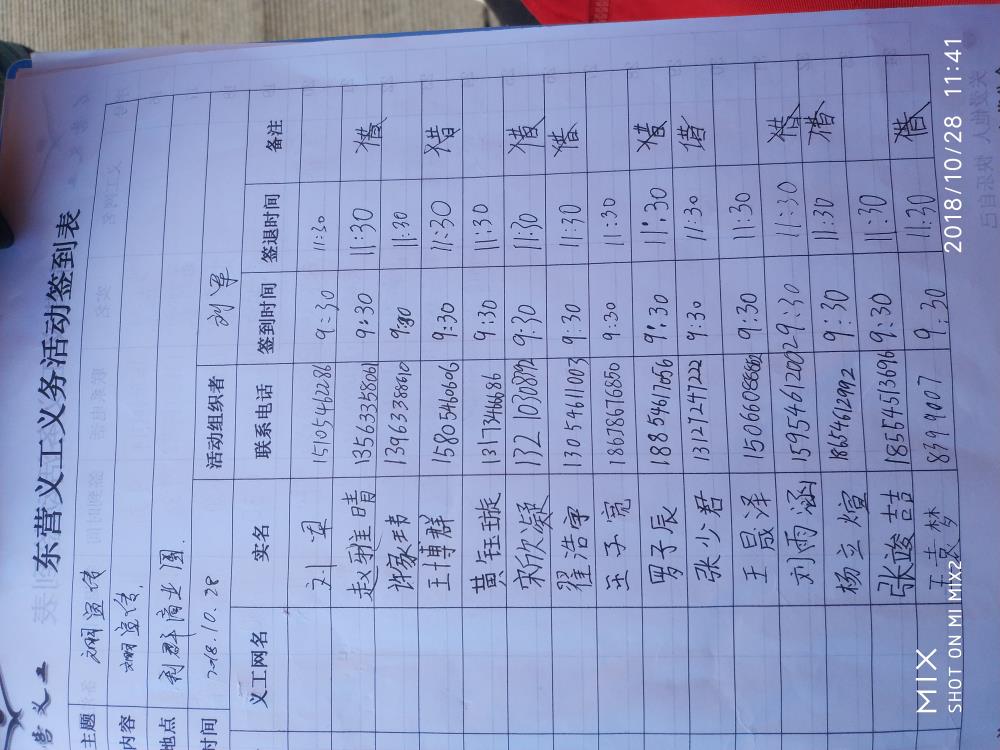 营义工
东营义工义务活动签到表
主题
内容
地点 利群商业圈.
时间 2018.10.28 活动组织者 刘军
义工网名 实名 联系电话 签到时间 签退时间 备注
刘梁 15105462286 9:30 11:30
赵雅晴 13563358061 9:30 11:30 借
许家玮 13963388610 9:30 11:30
王博群 15805460606 9:30 11:30 借
苗钰璇 13173466686 9:30 11:30
宋欣凝 13210308992 9:30 11:30 借
翟浩宇 13054611003 9:30 11:30 借
王子宽 18678676850 9:30 11:30
罗子辰 18854617056 9:30 11:30 借
张少君 13127247222 9:30 11:30 借
王晟泽 9:30 11:30
刘雨涵 15954612002 9:30 11:30 借
杨立煊 18654612992 9:30 11:30 借
张竣喆 18554513696 9:30 11:30
王袁梦 8399007 9:30 11:30 借
2018/10/28 11:41
MIX
SHOT ON MI MIX2